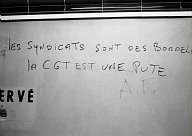 LES SYNDICATS SONT DES BORDELS
LA CGT EST UNE PUTE
A.F.
ERVÉ